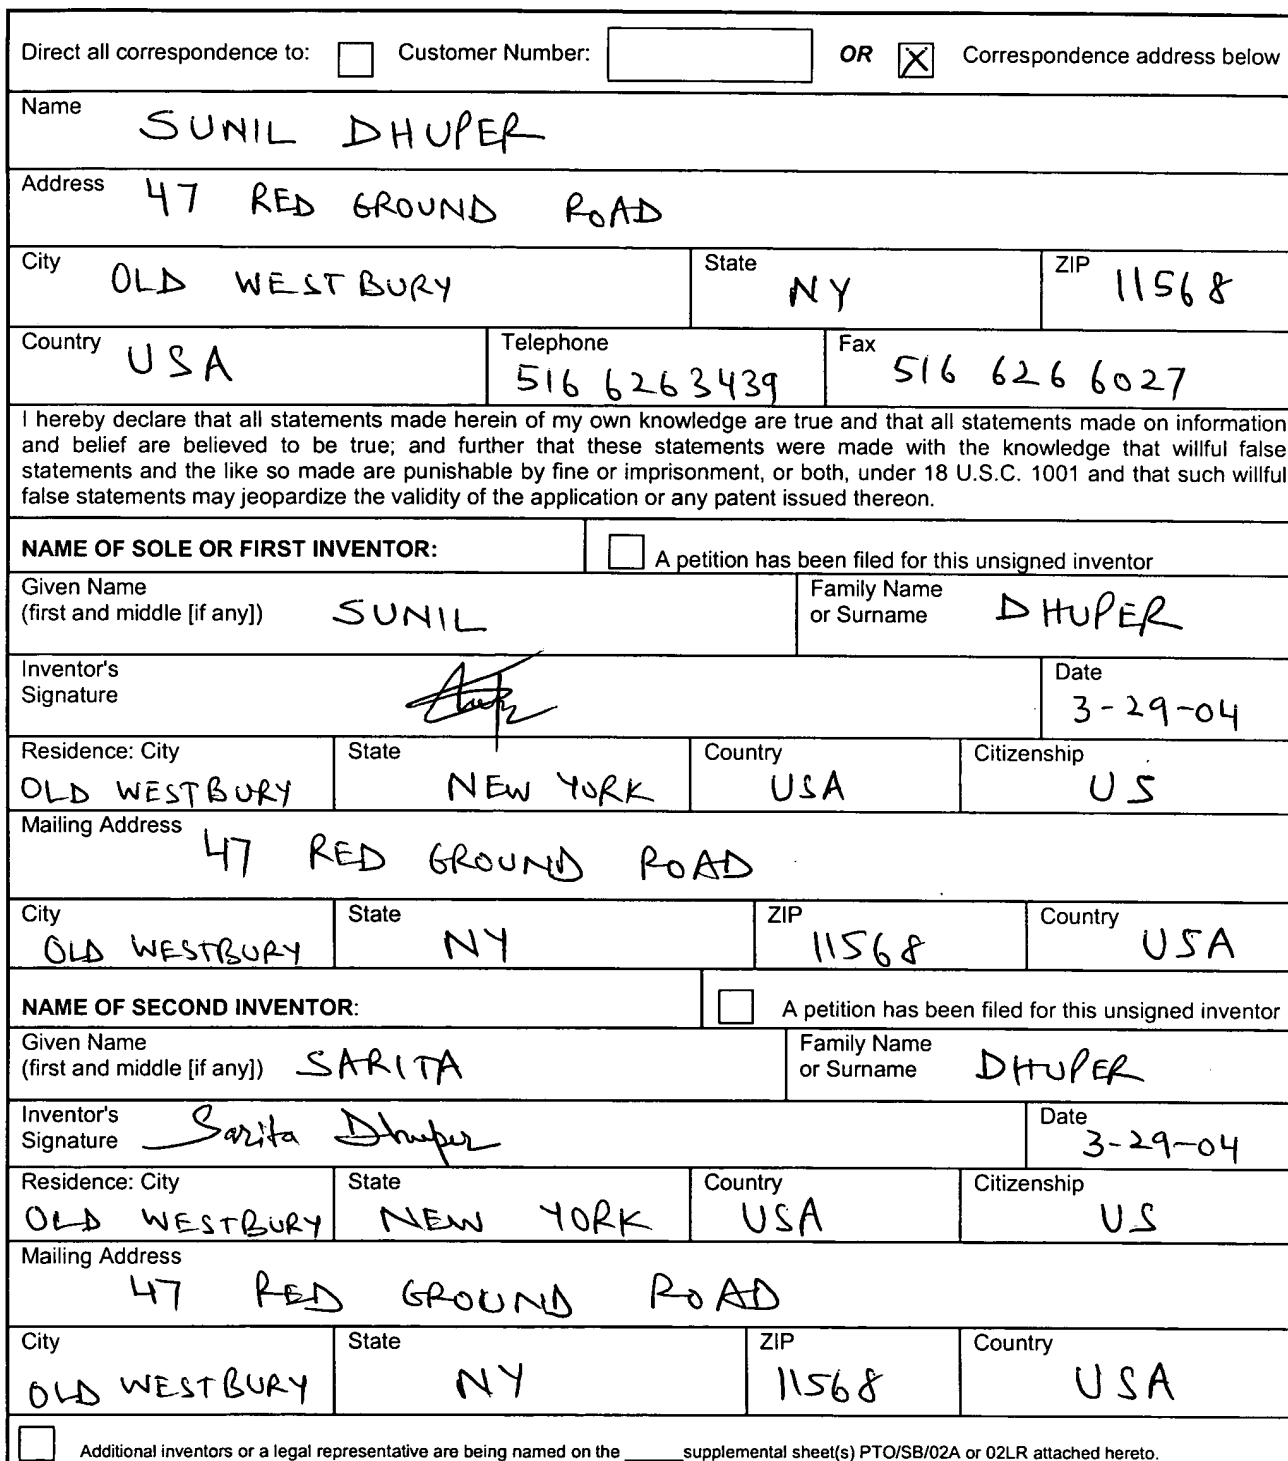 Direct all correspondence to: Customer Number: OR X Correspondence address below
Name SUNIL DHUPER
Address 47 RED GROUND ROAD
City OLD WESTBURY State NY ZIP 11568
Country USA Telephone 516 626 3439 Fax 516 626 6027
I hereby declare that all statements made herein of my own knowledge are true and that all statements made on information
and belief are believed to be true; and further that these statements were made with the knowledge that willful false
statements and the like so made are punishable by fine or imprisonment, or both, under 18 U.S.C. 1001 and that such willful
false statements may jeopardize the validity of the application or any patent issued thereon.
NAME OF SOLE OR FIRST INVENTOR: A petition has been filed for this unsigned inventor
Given Name
(first and middle [if any]) SUNIL
Family Name
or Surname DHUPER
Inventor's
Signature
Date
3-29-04
Residence: City State Country Citizenship
OLD WESTBURY NEW YORK USA US
Mailing Address
47 RED GROUND ROAD
City State ZIP Country
OLD WESTBURY NY 11568 USA
NAME OF SECOND INVENTOR: A petition has been filed for this unsigned inventor
Given Name
(first and middle [if any]) SARITA
Family Name
or Surname DHUPER
Inventor's
Signature Sarita Dhuper
Date
3-29-04
Residence: City State Country Citizenship
OLD WESTBURY NEW YORK USA US
Mailing Address
47 RED GROUND ROAD
City State ZIP Country
OLD WESTBURY NY 11568 USA
Additional inventors or a legal representative are being named on the ______supplemental sheet(s) PTO/SB/02A or 02LR attached hereto.